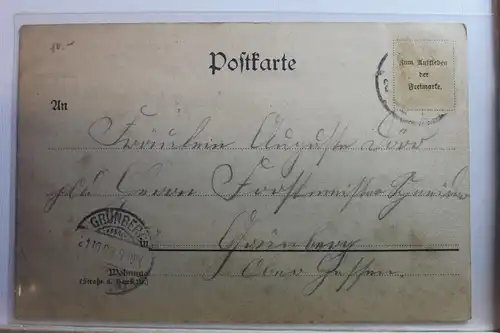 10.-
Postkarte
Zum Aufkleben
der
Freimarke.
An
Fräulein Auguste Dörr
Herrn Forstmeister
GRÜNBERG
Grünberg
Wohnung
Ober Hessen.
(Straße u.